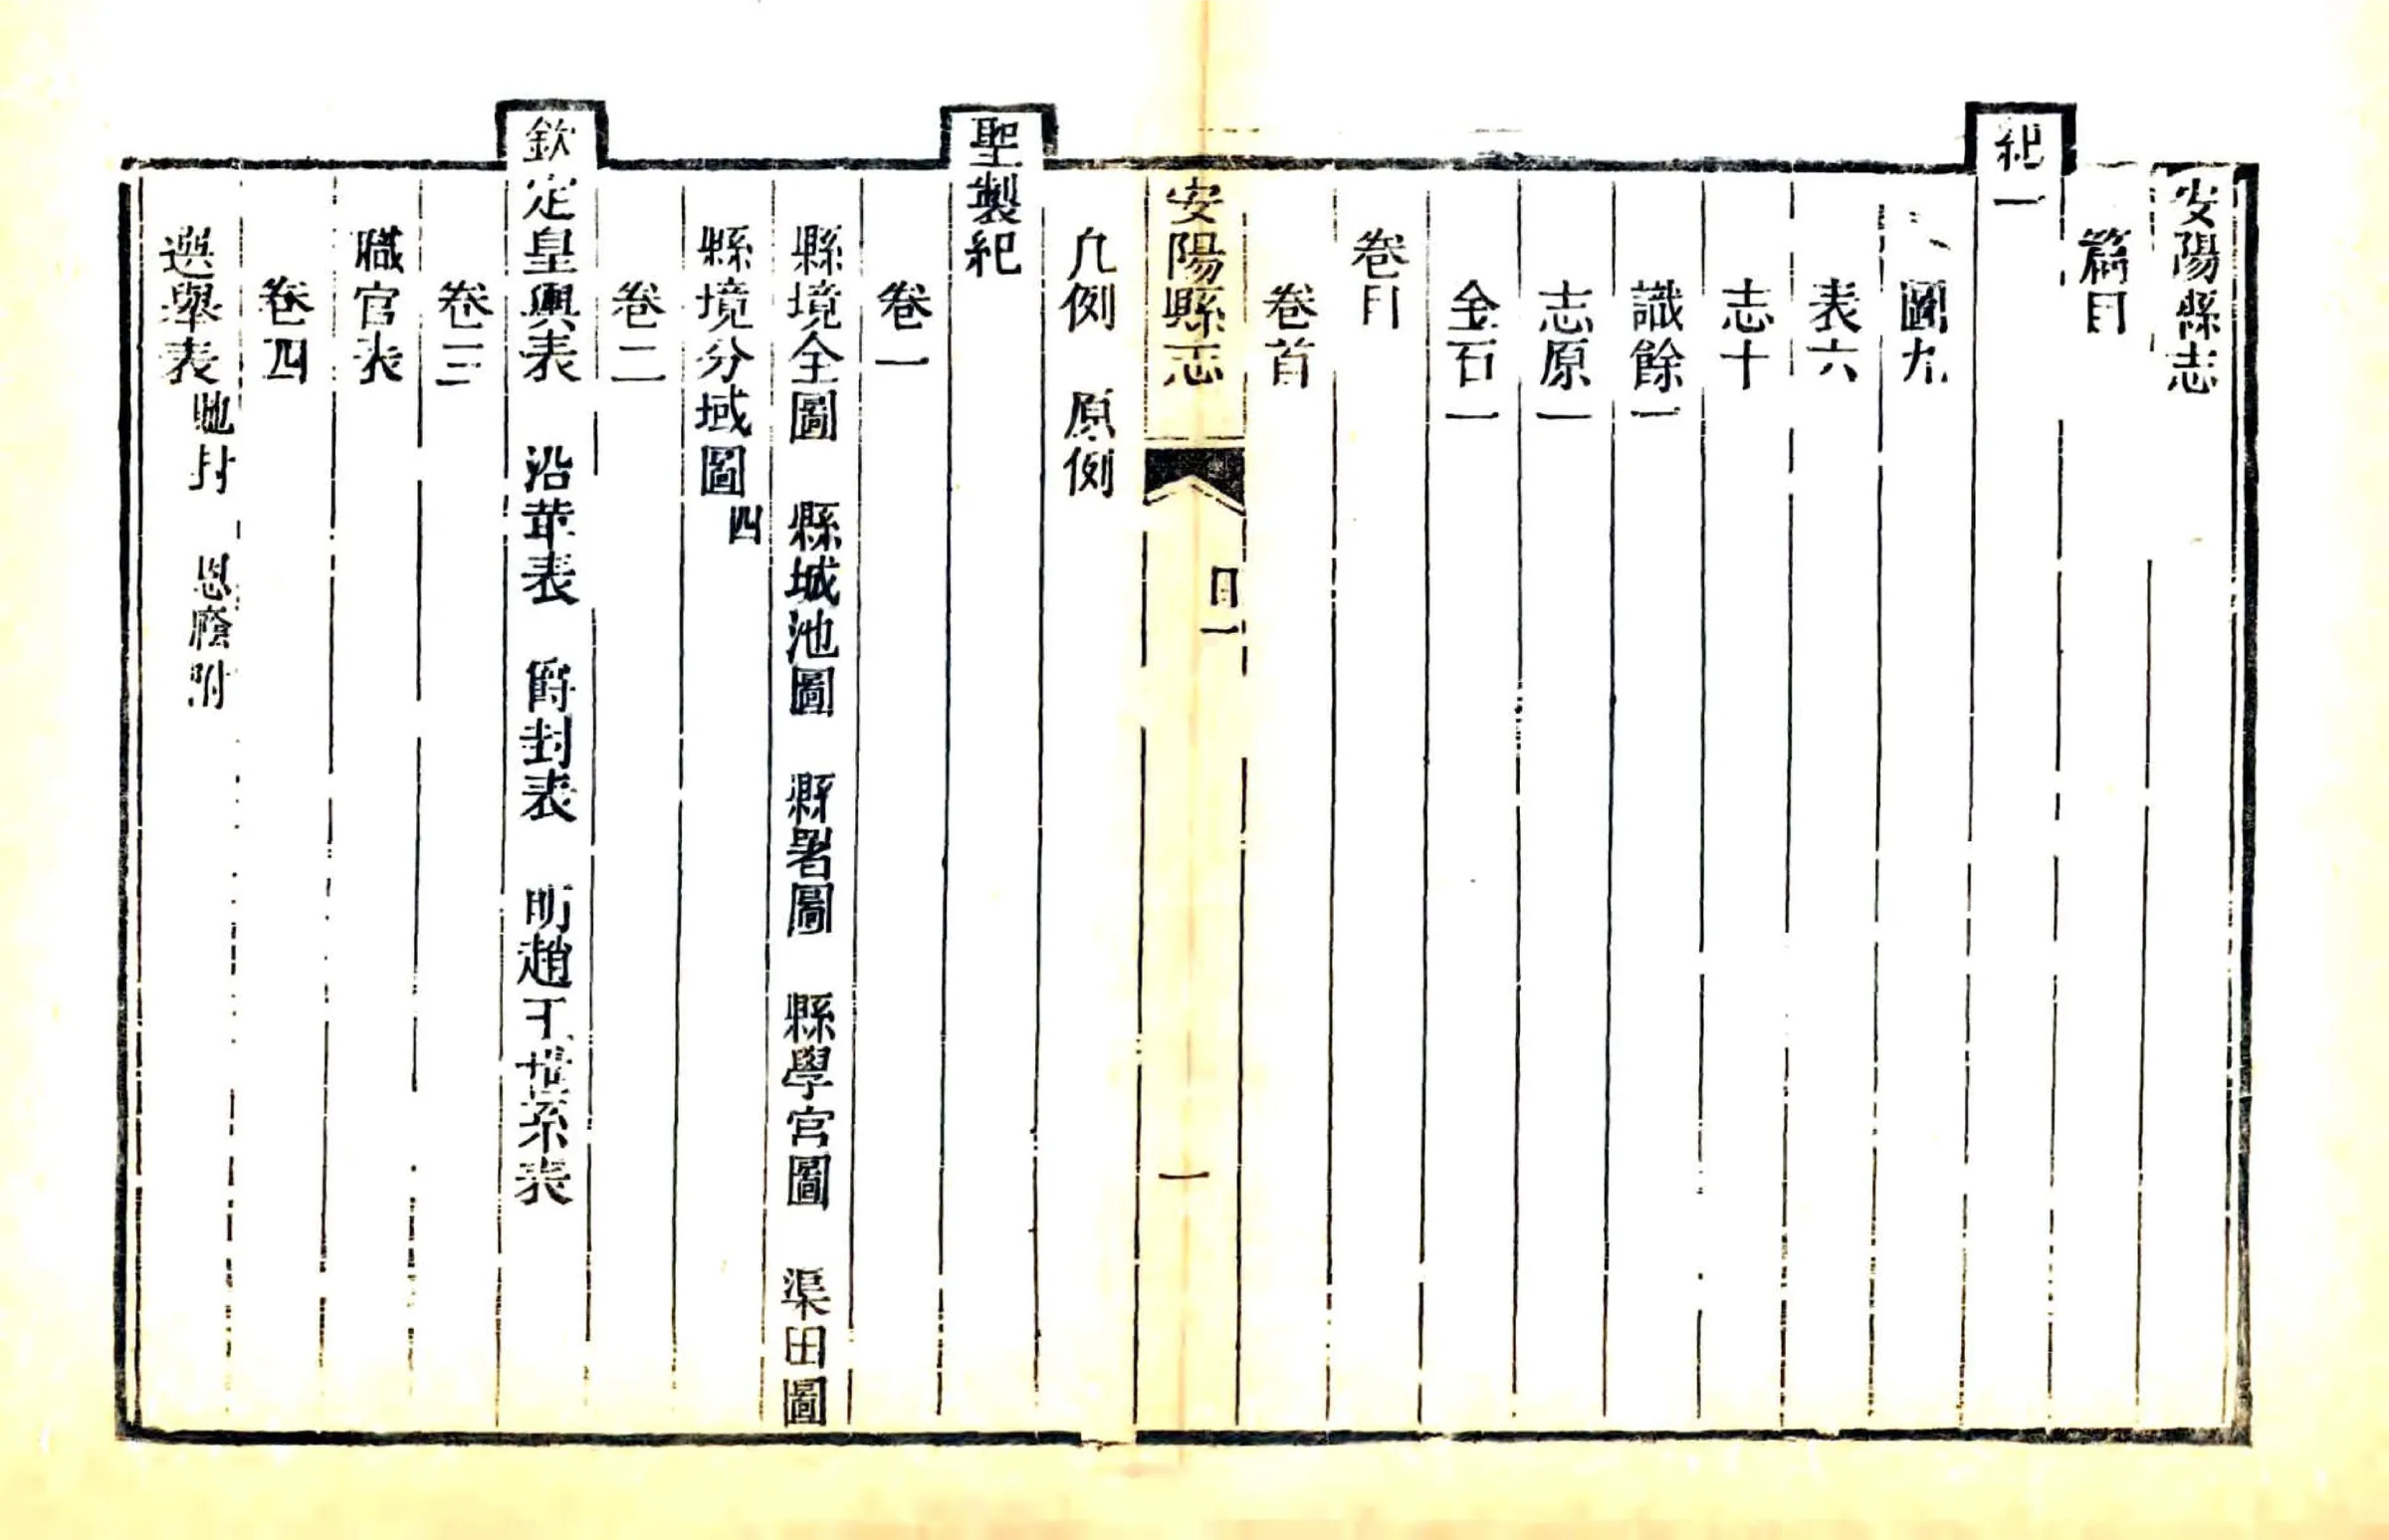 安陽縣志
篇目
紀一
圖九
表六
志十
識餘一
志原一
金石一
卷目
卷首
安陽縣志 目一 一
凡例 原例
聖製紀
卷一
縣境全圖 縣城池圖 縣署圖 縣學宮圖 渠田圖
縣境分域圖四
卷二
欽定皇輿表 沿革表 爵封表 明趙王世系表
卷三
職官表
卷四
選舉表馳封 恩廕附